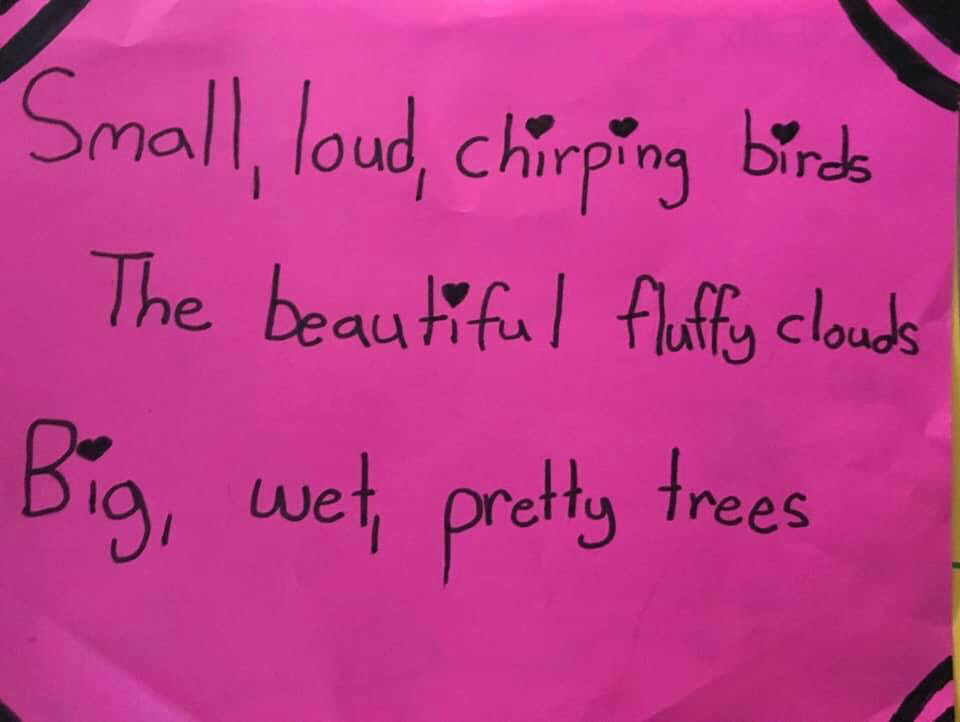 Small, loud, chirping birds
The beautiful fluffy clouds
Big, wet, pretty trees